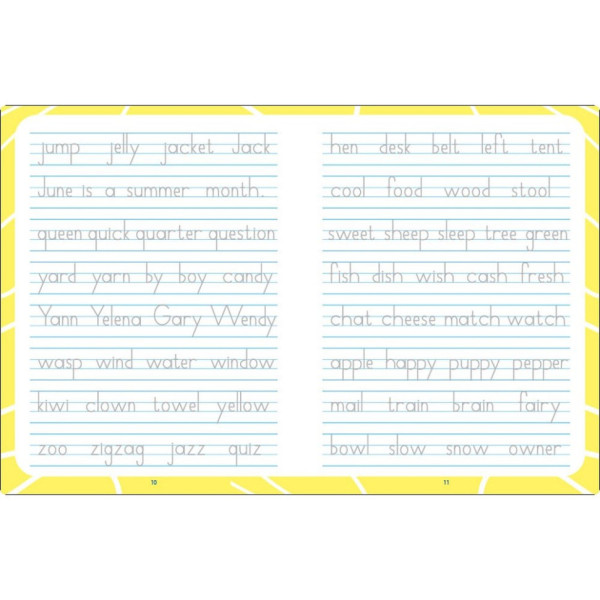 jump jelly jacket Jack
June is a summer month.
queen quick quarter question
yard yarn by boy candy
Yann Yelena Gary Wendy
wasp wind water window
kiwi clown towel yellow
zoo zigzag jazz quiz
10
hen desk belt left tent
cool food wood stool
sweet sheep sleep tree green
fish dish wish cash fresh
chat cheese match watch
apple happy puppy pepper
mail train brain fairy
bowl slow snow owner
11